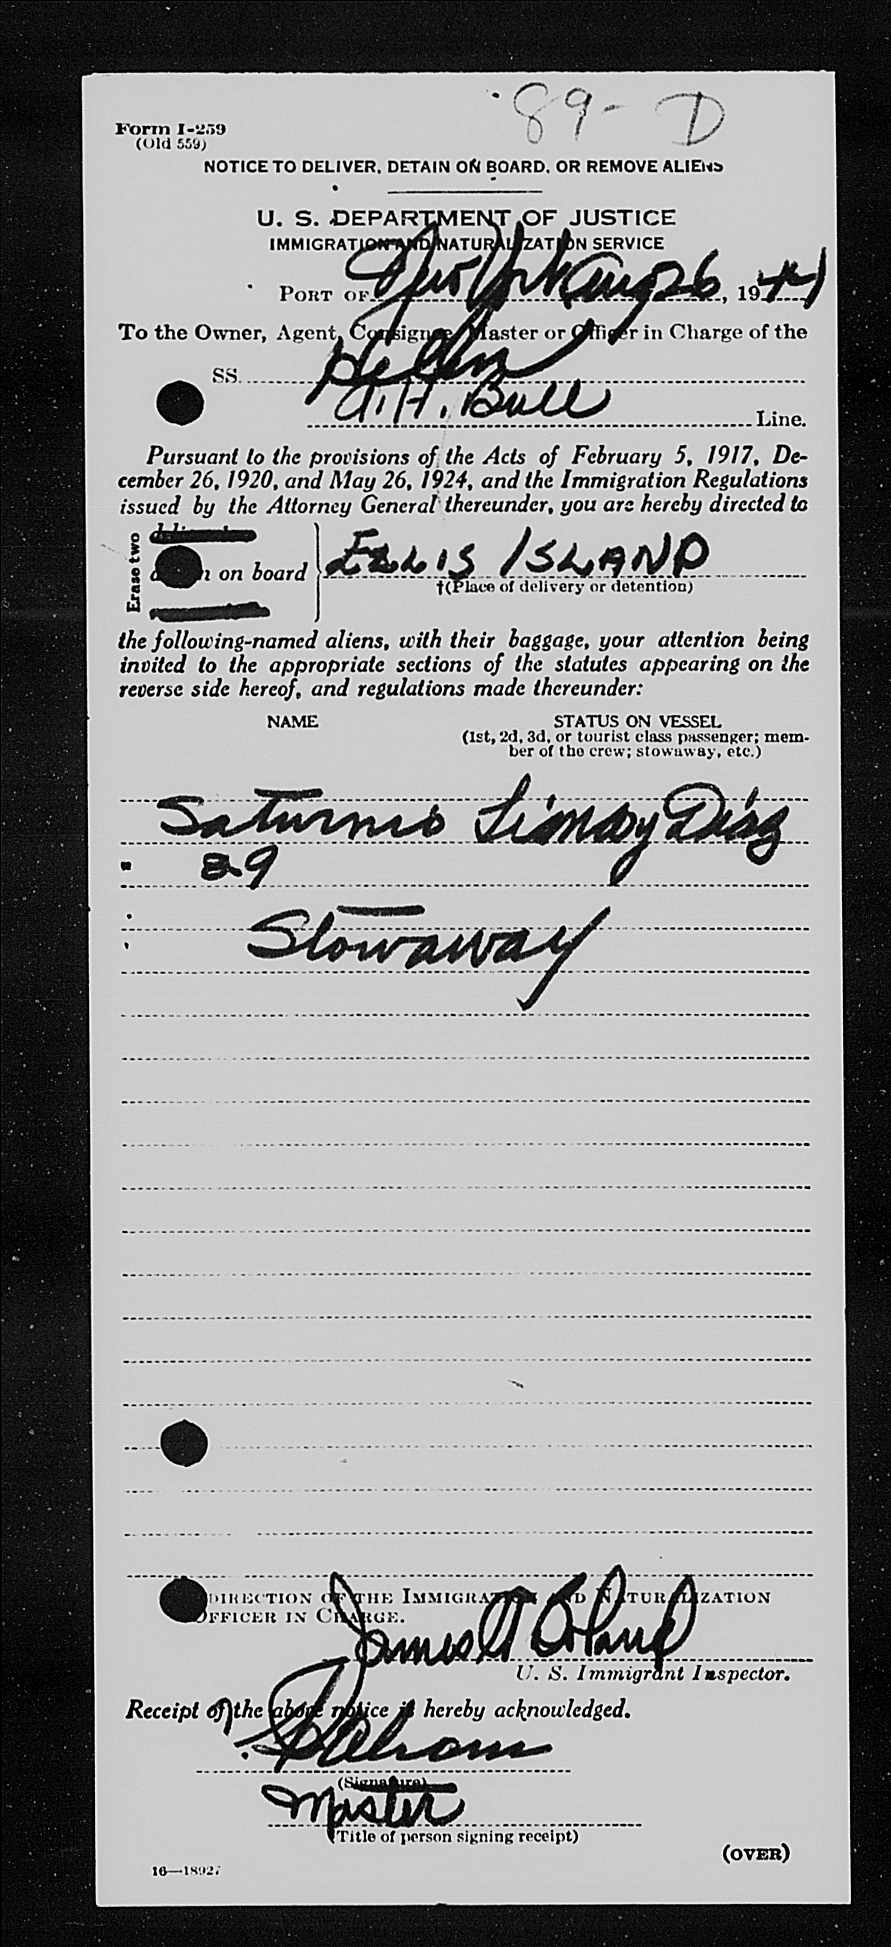 89- D
Form I-259
(Old 559)
NOTICE TO DELIVER, DETAIN ON BOARD, OR REMOVE ALIENS
U. S. DEPARTMENT OF JUSTICE
IMMIGRATION AND NATURALIZATION SERVICE
PORT OF New York Aug 26, 1944
To the Owner, Agent, Consignee, Master or Officer in Charge of the
SS. Helen
A. H. Bull Line.
Pursuant to the provisions of the Acts of February 5, 1917, De-
cember 26, 1920, and May 26, 1924, and the Immigration Regulations
issued by the Attorney General thereunder, you are hereby directed to
Erase two
on board
ELLIS ISLAND
†(Place of delivery or detention)
the following-named aliens, with their baggage, your attention being
invited to the appropriate sections of the statutes appearing on the
reverse side hereof, and regulations made thereunder:
NAME STATUS ON VESSEL
(1st, 2d, 3d, or tourist class passenger; mem-
ber of the crew; stowaway, etc.)
Saturnio Diaz
29
Stowaway
DIRECTION OF THE IMMIGRATION AND NATURALIZATION
OFFICER IN CHARGE.
James Boland
U. S. Immigrant Inspector.
Receipt of the above notice is hereby acknowledged.
(Signature)
Master
(Title of person signing receipt)
(OVER)
16—18927